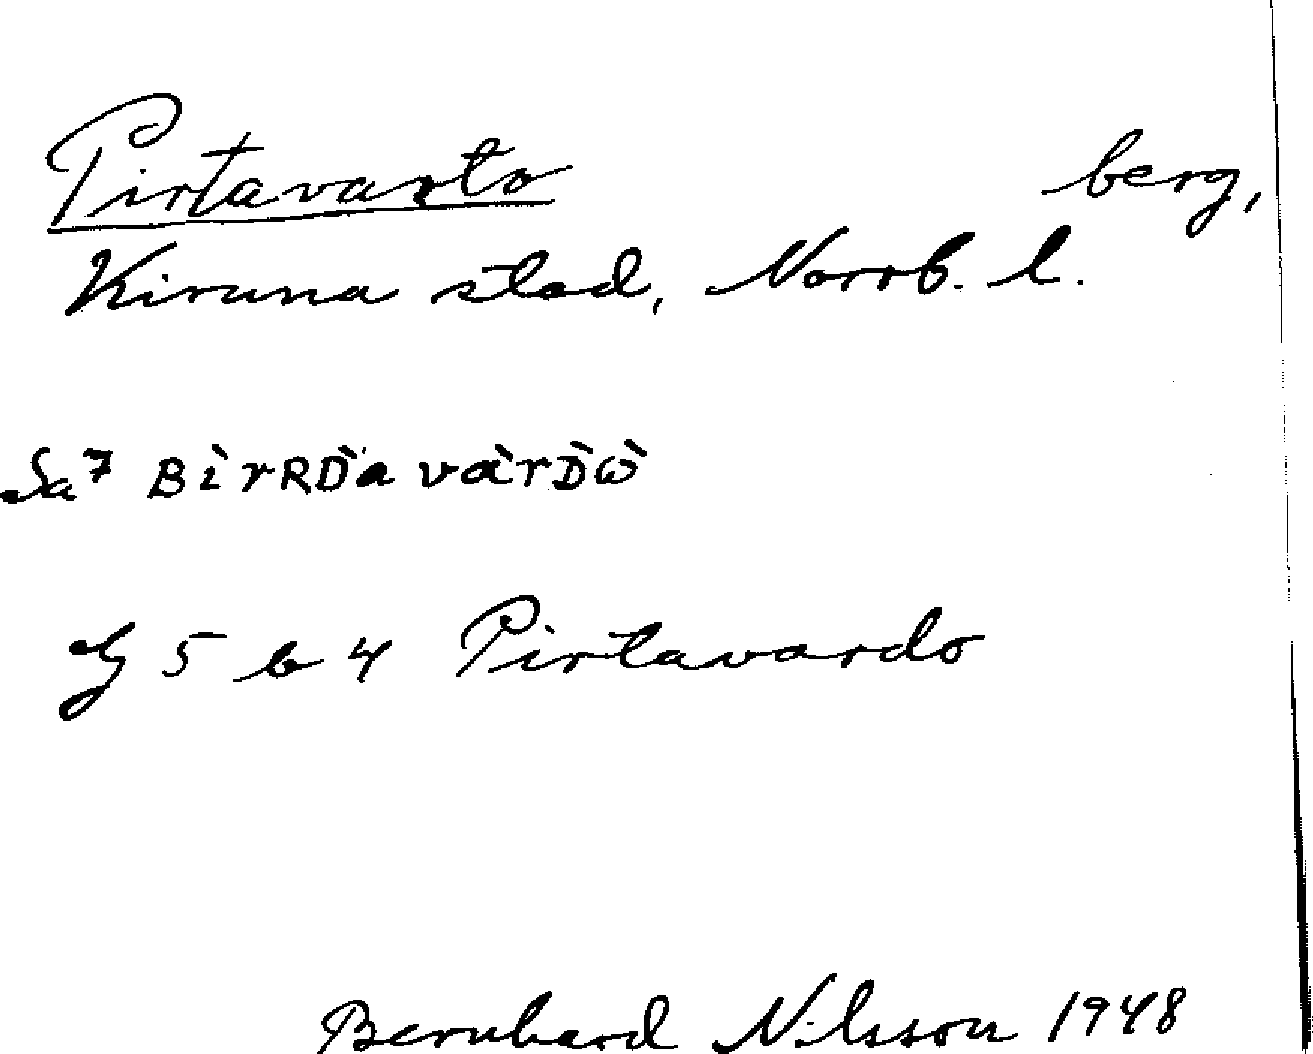 Pirtavarto berg,
Kiruna stad, Norrb. l.
Sa 7 BìrRD̀a vàrD̀ὼ
G 5 b 4 Pirtavardo
Bernhard Nilsson 1948